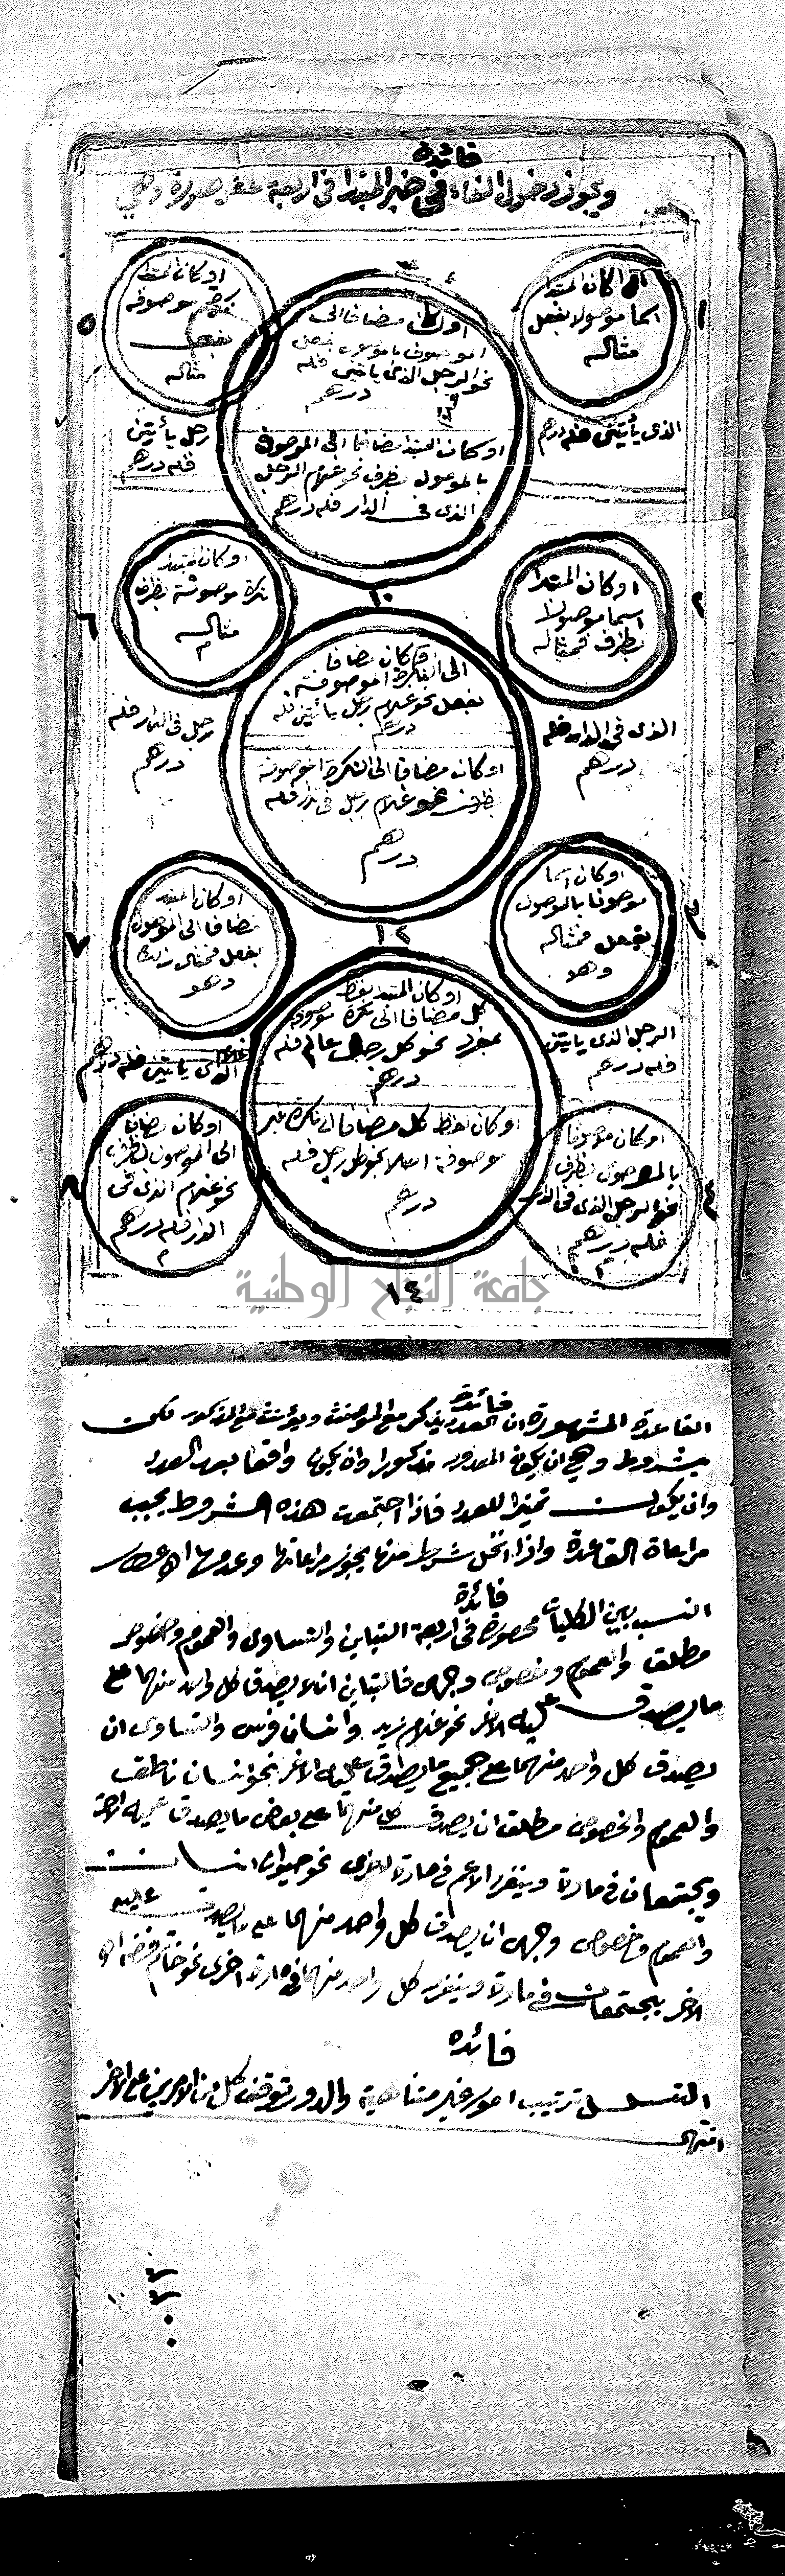 فائدة
ويجوز دخول الفاء في خبر المبتدا في اربعة عشر صورة وهي
١
اذا كان المبتدا
اسما موصولا بفعل
مثاله
الذي يأتيني فله درهم
٢
او كان المبتدا
اسما موصولا
بظرف مثاله
الذي في الدار فله
درهم
٣
او كان اسما
موصوفا بالموصول
بفعل مثاله
وهو
الرجل الذي ياتيني
فله درهم
٤
او كان موصوفا
بالموصول بظرف
نحو الرجل الذي في الدار
فله درهم
٥
او كان المبتدا
نكرة موصوفة
بفعل
مثاله
رجل يأتيني
فله درهم
٦
او كان مبتدا
نكرة موصوفة بظرف
مثاله
رجل في الدار فله
درهم
٧
او كان المبتدا
مضافا الى الموصول
بفعل
وهو
غلام
الذي ياتيني فله درهم
٨
او كان مضافا
الى الموصول بظرف
نحو غلام الذي في
الدار فله درهم
او كان مضافا الى
الموصوف بالموصول بفعل
نحو الرجل الذي ياتيني فله
درهم
او كان المبتدا مضافا الى الموصوف
بالموصول بظرف نحو غلام الرجل
الذي في الدار فله درهم
١٠
او كان مضافا
الى النكرة الموصوفة
بفعل نحو غلام رجل يأتيني فله
درهم
او كان مضافا الى النكرة الموصوفة
بظرف نحو غلام رجل في الدار فله
درهم
١٢
او كان المبتدا بلفظ
كل مضافا الى نكرة موصوفة
بمفرد نحو كل رجل عالم فله
درهم
او كان لفظ كل مضافا الى نكرة غير
موصوفة اصلا نحو كل رجل فله
درهم
١٤
جامعة النجاح الوطنية
فائدة
القاعدة المشهورة ان العدد يذكر مع المؤنث ويؤنث مع المذكور لكن
بشروط وهي ان يكون المعدود مذكورا وان يكون واقعا بعد العدد
وان يكون تميزا للعدد فاذا اجتمعت هذه الشروط يجب
مراعاة القاعدة واذا اختل شرط منها يجوز مراعاتها وعدمها
فائدة
النسب بين الكليات محصورة في اربعة التباين والتساوي والعموم وخصوص
مطلق والعموم وخصوص وجهي فالتباين ان لا يصدق كل واحد منهما على
ما يصدق عليه الاخر نحو غلام زيد وانسان فرس والتساوي ان
يصدق كل واحد منهما على جميع ما يصدق عليه الاخر نحو انسان ناطق
والعموم والخصوص مطلق ان يصدق كل منهما على بعض ما يصدق عليه الاخر
ويجتمعان في مادة وينفرد الاعم في مادة اخرى نحو حيوان انسان
والعموم وخصوص وجهي ان يصدق كل واحد منهما على ما يصدق عليه
الاخر يجتمعان في مادة وينفرد كل واحد منهما في مادة اخرى نحو خاتم فضة
فائدة
التسلسل ترتيب امور غير متناهية والدور توقف كل من الامرين على الاخر
انتهى